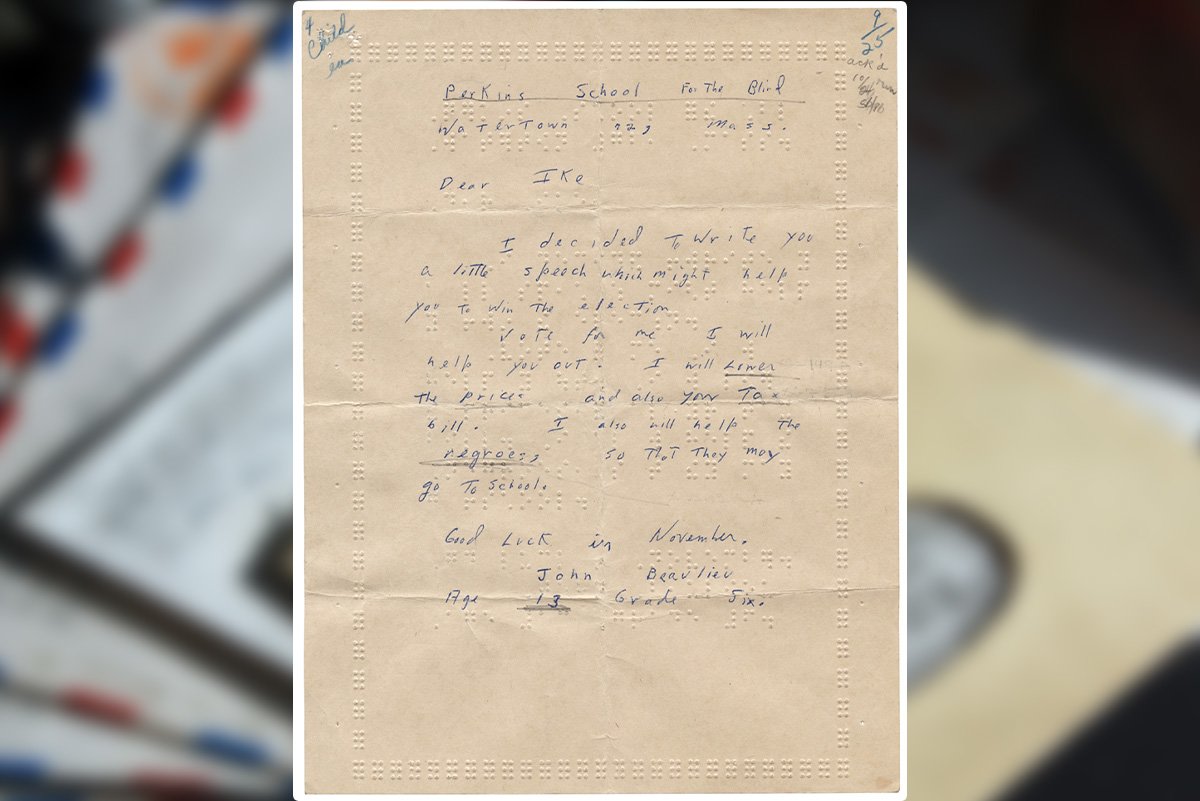 4
Child
9/25
ack'd
10/
Perkins School For The Blind
Watertown 72, Mass.
Dear Ike
I decided To Write you
a little speech which might help
you To win The election
Vote for me I will
help you out. I will Lower
The prices and also your Tax
bill. I also will help The
negroes, so That They may
go To school.
Good Luck in November.
John Beaulieu
Age 13 Grade Six.